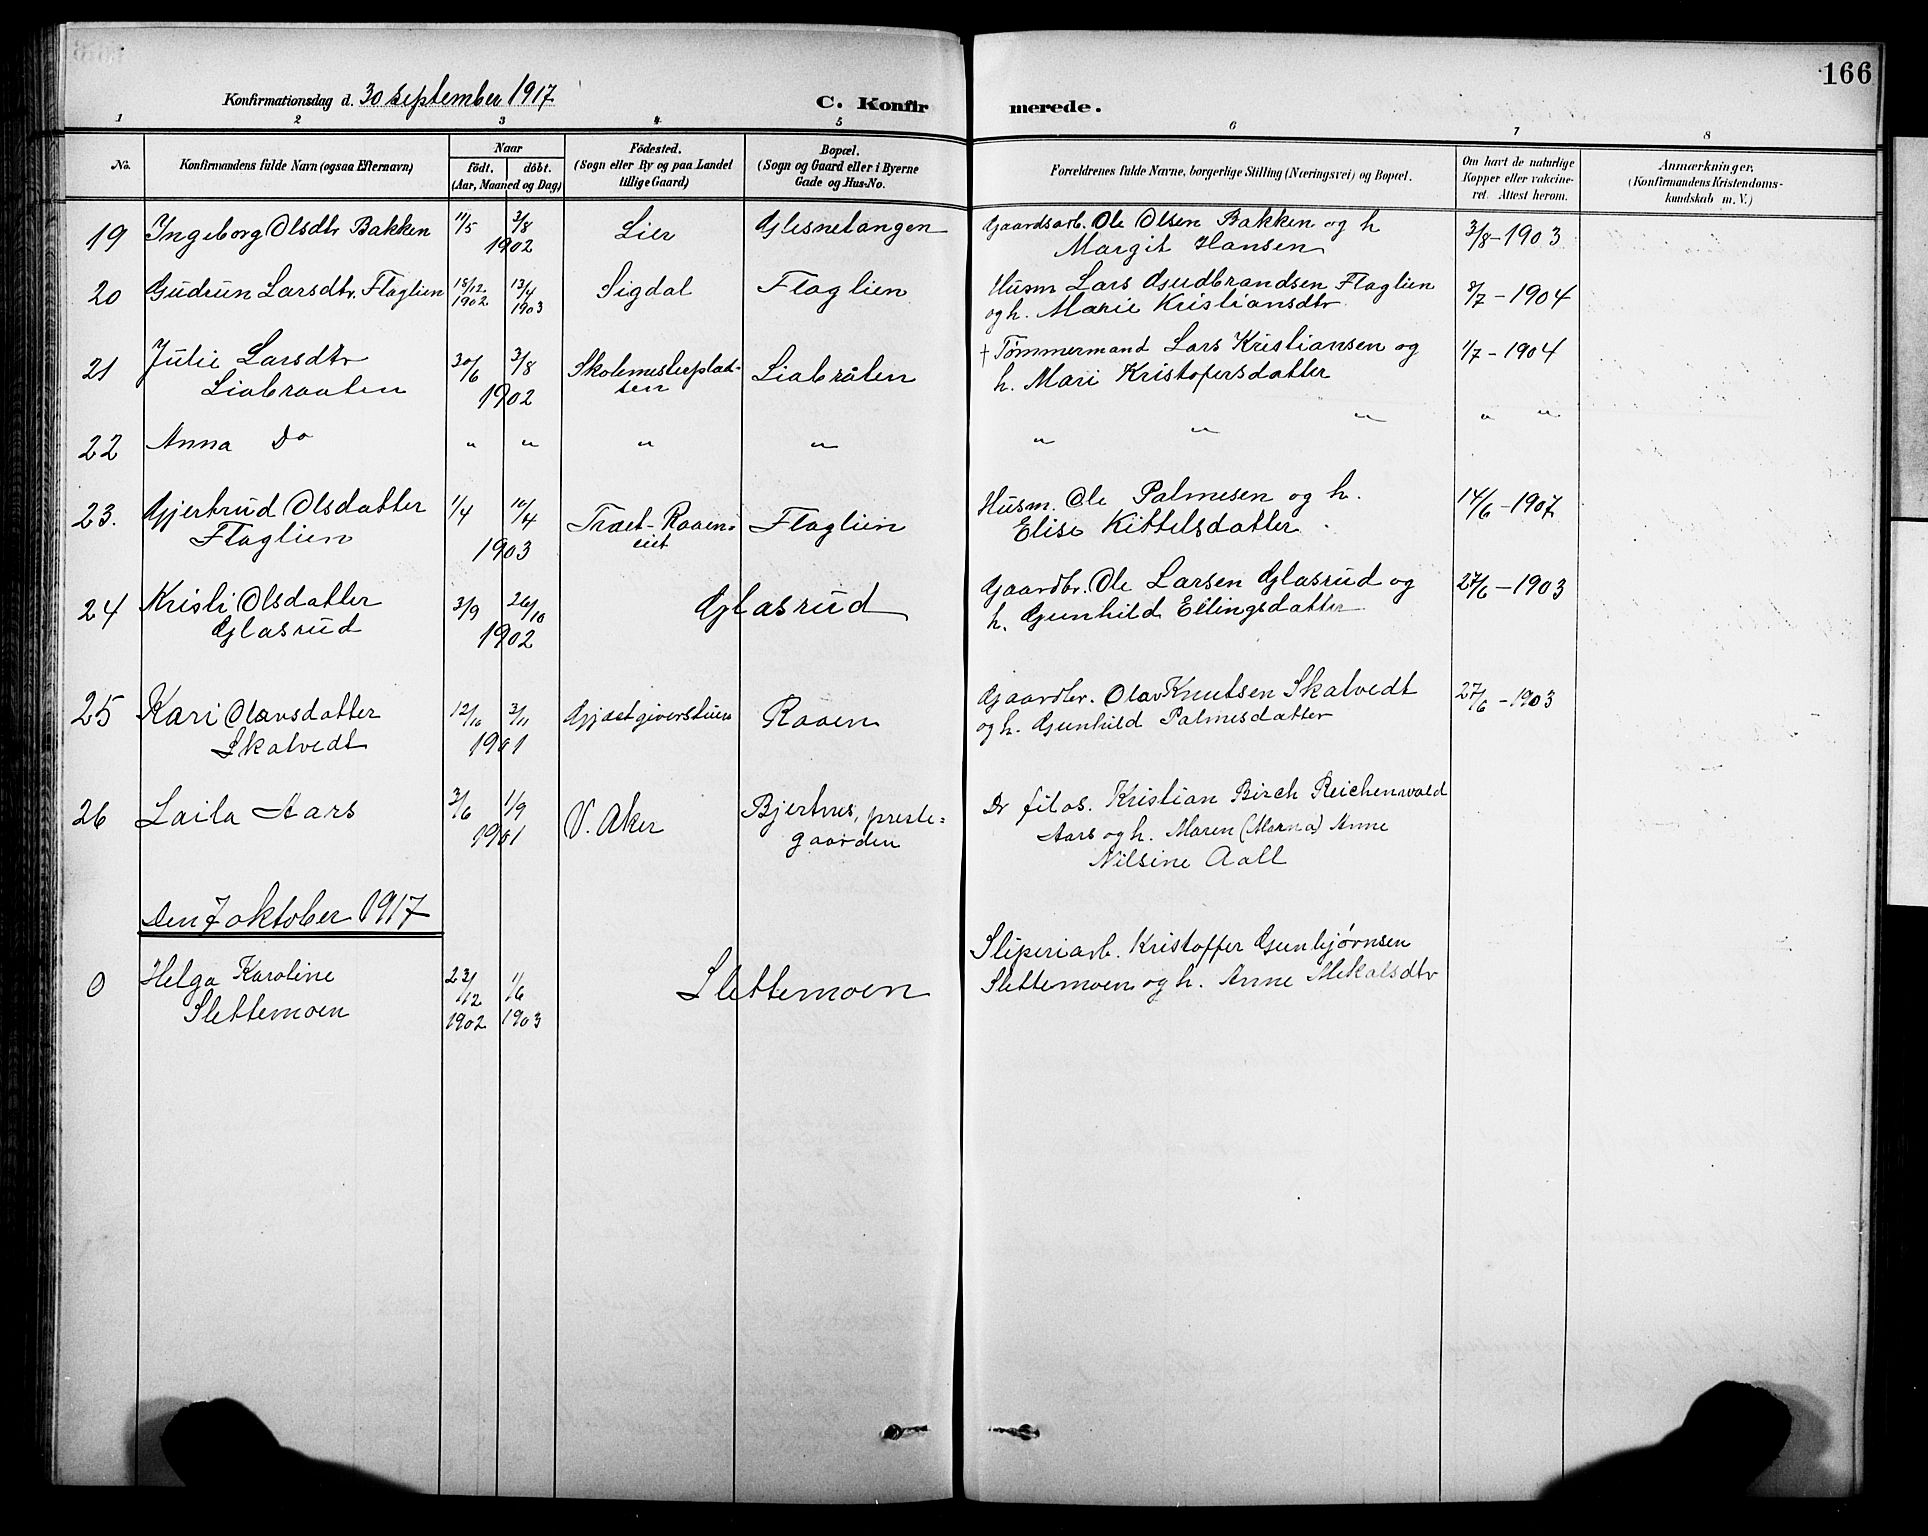 166
Konfirmationsdag d. 30 september 1917
C. Konfirmerede.
1 2 3 4 5 6 7 8
No. Konfirmandens fulde Navn (ogsaa Efternavn)
Naar
födt. döbt.
(Aar, Maaned og Dag)
Födested.
(Sogn eller By og paa Landet
tillige Gaard)
Bopæl.
(Sogn og Gaard eller i Byerne
Gade og Hus-No.
Forældrenes fulde Navne, borgerlige Stilling (Næringsvei) og Bopæl.
Om havt de naturlige
Kopper eller vakcine-
ret. Attest herom.
Anmærkninger.
(Konfirmandens Kristendoms-
kundskab m. V.)
19 Ingeborg Olsdtr Bakken 11/5 3/8 1902 Lier Glesnetangen Gaardsarb. Ole Olsen Bakken og h
Margit Hansen 3/8-1903
20 Gudrun Larsdtr. Flaglien 18/12 1902 13/4 1903 Sigdal Flaglien Husm Lars Gudbrandsen Flaglien
og h. Marie Kristiansdtr 8/7-1904
21 Julie Larsdtr
Liabraaten 30/6 3/8 1902 Skolemesterplad-
sen Liabråten † Tømmermand Lars Kristiansen og
h. Mari Kristofersdatter 1/7-1904
22 Anna Do " " " " " " " " "
23. Gjertrud Olsdatter
Flaglien 1/4 10/4 1903 Træet-Raaen-
eiet Flaglien Husm. Ole Palmesen og h.
Elise Kittelsdatter 14/6-1907
24 Kristi Olsdatter
Glasrud 3/9 26/10 1902 Glasrud Gaardbr. Ole Larsen Glasrud og
h. Gunhild Ellingsdatter 27/6-1903
25 Kari Olavsdatter
Skalvedt 12/10 3/11 1901 Gjæstgiverstuen Raaen Gaardbr. Olav Knutsen Skalvedt
og h. Gunhild Palmesdatter 27/6-1903
26 Laila Aars 3/6 1/9 1901 V. Aker Bjertnes, preste-
gaarden Dr filos. Kristian Birch Reichenwald
Aars og h. Maren (Marna) Anne
Nilsine Aall
Den 7 oktober 1917
0 Helga Karoline
Slettemoen 23/12 1902 1/6 1903 Slettemoen Sliperiarb. Kristoffer Gunbjørnsen
Slettemoen og h. Anne Mikalsdtr